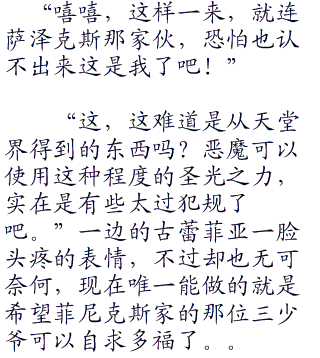 “嘻嘻，这样一来，就连
萨泽克斯那家伙，恐怕也认
不出来这是我了吧！”
“这，这难道是从天堂
界得到的东西吗？恶魔可以
使用这种程度的圣光之力，
实在是有些太过犯规了
吧。”一边的古蕾菲亚一脸
头疼的表情，不过却也无可
奈何，现在唯一能做的就是
希望菲尼克斯家的那位三少
爷可以自求多福了。。